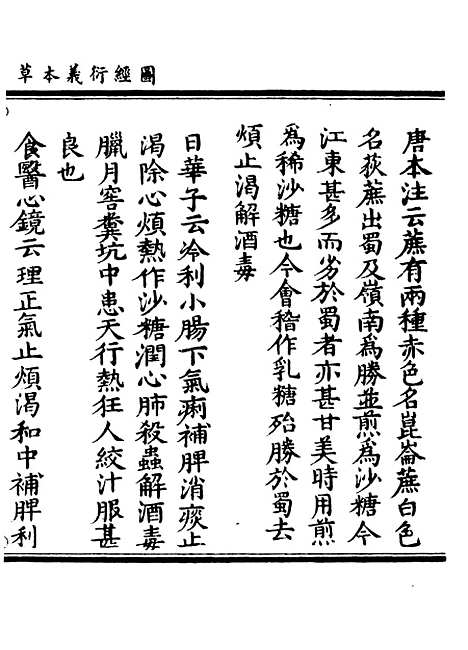 圖經衍義本草
唐本注云蔗有兩種赤色名崑崙蔗白色
名荻蔗出蜀及嶺南爲勝並煎爲沙糖今
江東甚多而劣於蜀者亦甚甘美時用煎
爲稀沙糖也今會稽作乳糖殆勝於蜀去
煩止渴解酒毒
日華子云冷利小腸下氣痢補脾消痰止
渴除心煩熱作沙糖潤心肺殺蟲解酒毒
臘月窖糞坑中患天行熱狂人絞汁服甚
良也
食醫心鏡云理正氣止煩渴和中補脾利